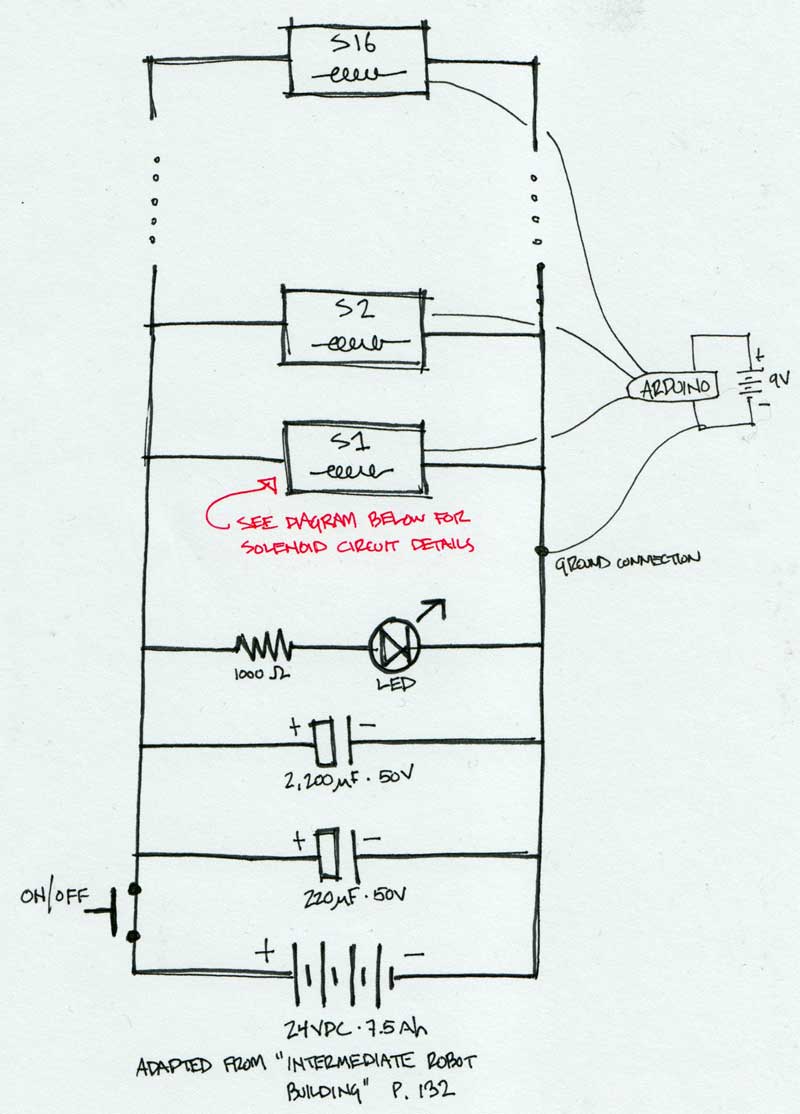 S16
S2
ARDUINO
+
9V
-
S1
SEE DIAGRAM BELOW FOR
SOLENOID CIRCUIT DETAILS
GROUND CONNECTION
1000 Ω
LED
+ -
2,200µF · 50V
+ -
220µF · 50V
ON/OFF
+ -
24VDC · 7.5Ah
ADAPTED FROM "INTERMEDIATE ROBOT
BUILDING" P. 132